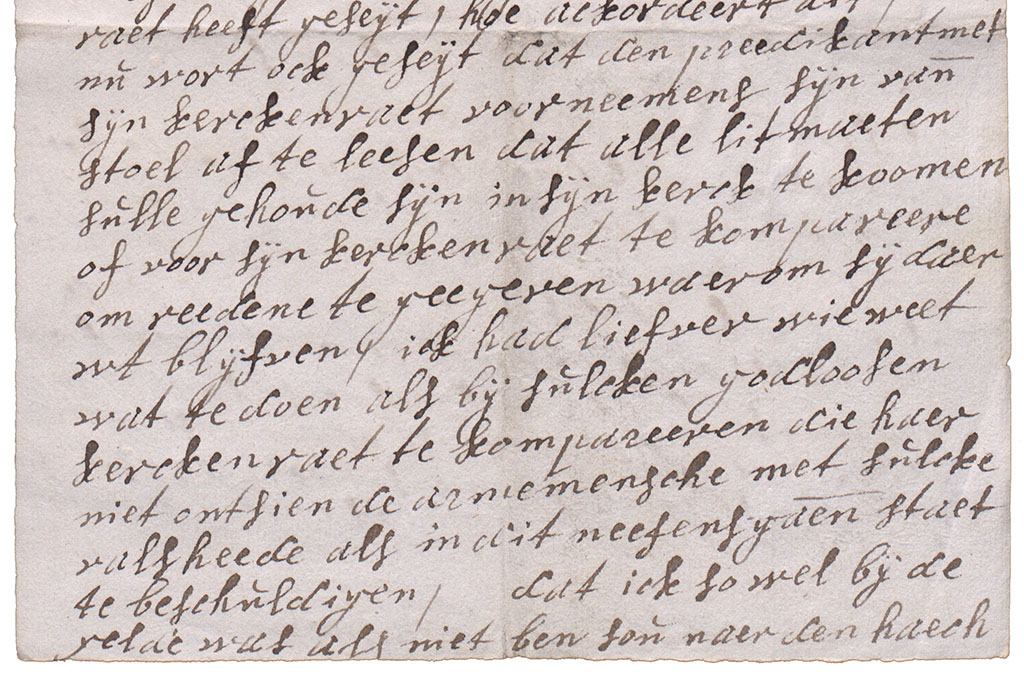 raet heeft geseyt, hoe ackordeert dit,
nu wort ock geseyt dat den preedikant met
syn kerckenraet voorneemens syn van
stoel af te leesen dat alle litmaeten
sulle gehoude syn in syn kerck te koomen
of voor syn kerckenraet te kompareere
om reedene te geegeven waerom sy daer
wt blyfven, ick had liefver wie weet
wat te doen als by sulcken godloosen
kerckenraet te kompareeren die haer
niet ontsien de armemensche met sulcke
valsheede als in dit neefensgaen staet
te beschuldigen, dat ick so wel by de
gelde was als niet ben sou naer den haech